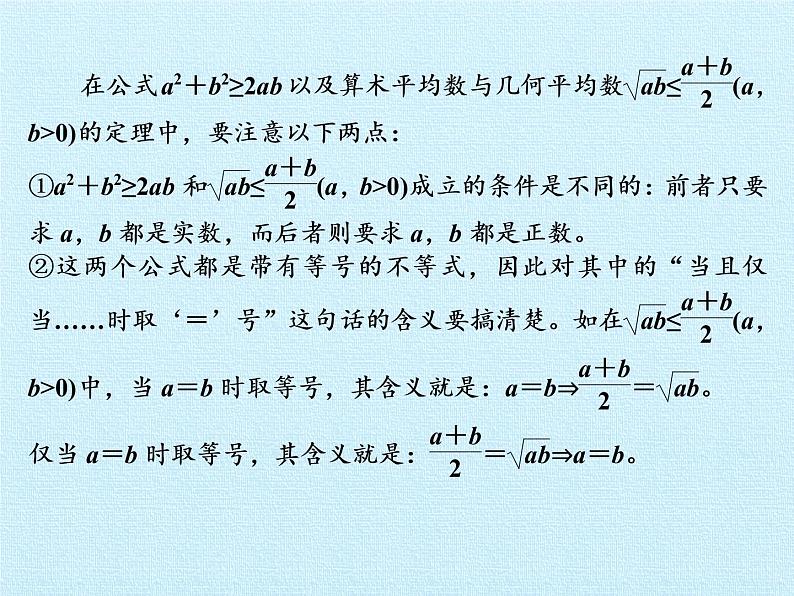 在公式a²＋b²≥2ab以及算术平均数与几何平均数√ab≤(a＋b)/2(a，
b>0)的定理中，要注意以下两点：
①a²＋b²≥2ab 和√ab≤(a＋b)/2(a，b>0)成立的条件是不同的：前者只要
求 a，b 都是实数，而后者则要求 a，b 都是正数。
②这两个公式都是带有等号的不等式，因此对其中的“当且仅
当……时取‘＝’号”这句话的含义要搞清楚。如在√ab≤(a＋b)/2(a，
b>0)中，当 a＝b 时取等号，其含义就是：a＝b⇒(a＋b)/2＝√ab。
仅当 a＝b 时取等号，其含义就是：(a＋b)/2＝√ab⇒a＝b。